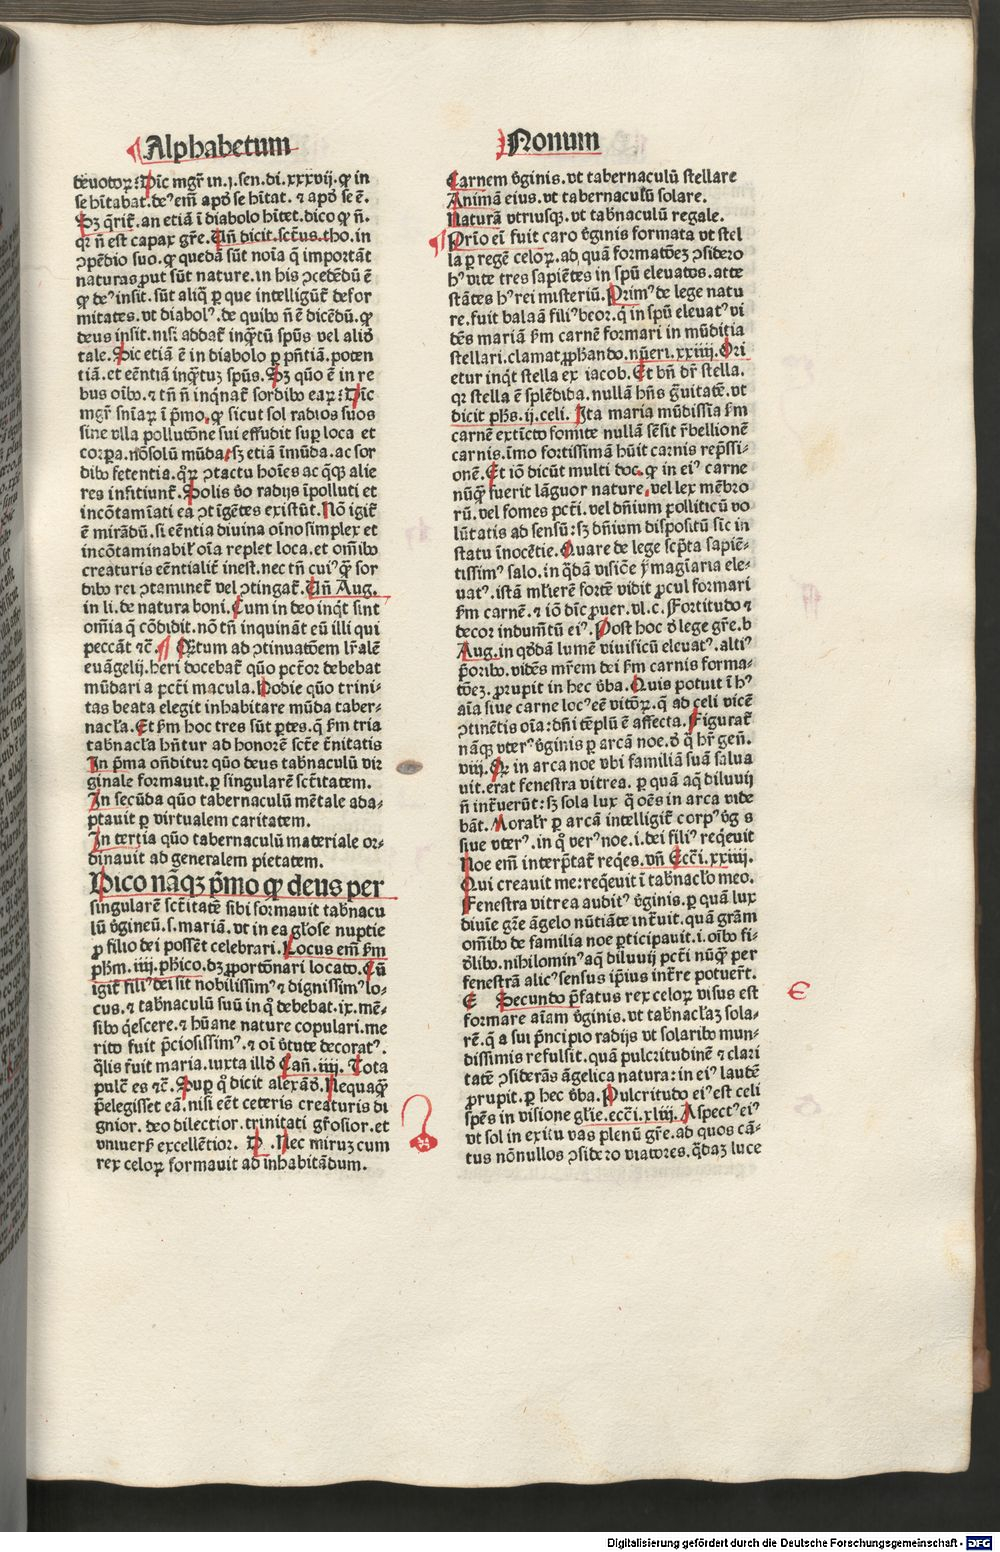 Alphabetum
Nonum
devotoꝝ: Dic̄ mgr̄ in .j. sen. di. xxxvij. ꝙ in
se hītabat. deꝰ em̄ apd̓ se hītat. ⁊ apd̓ se ē.
Sꝫ q̄rit̄. an etiā ī diabolo hītet. dico ꝙ n̄.
qꝛ n̄ est capax gr̄e. Un̄ dicit. sct̄us. tho. in
ↄpēdio suo. ꝙ quedā sūt noīa q̄ importāt
naturas ꝓut sūt nature. in his ↄcedēdū ē
ꝙ deꝰ insit. sūt aliq̄ ꝑ que intelligūt̄ defor
mitates. vt diabolꝰ. de quibꝰ n̄ ē dicēdū. ꝙ
deus insit. nisi addat̄ inq̄tū spūs vel aliqd̓
tale. Sic etiā ē in diabolo ꝑ pn̄tiā. poten
tiā. et eēntiā inq̄tuꝫ spūs. Sꝫ quō ē in re
bus oībꝰ. ⁊ tn̄ n̄ inq̇nat̄ sordibꝰ eaꝝ: Dic̄
mgr̄ sn̄iaꝝ ī p̄mo. ꝙ sicut sol radios suos
sine vlla pollutōne sui effudit suꝑ loca et
corꝑa. nōsolū mūda. sꝫ etiā īmūda. ac sor
dibꝰ fetentia. q̄ꝝ ↄtactu hoīes ac q̄qꝫ alie
res inficiunt̄. Solis v̓o radijs īpolluti et
incōtamīati ea ↄtīgētes existūt. Nō igit̄
ē mirādū. si eēntia diuina oīno simplex et
incōtaminabil̓ oīa replet loca. et om̄ibꝰ
creaturis eēntialit̄ inest. nec tn̄ cuiꝰq̄ sor
dibꝰ rei ↄtaminet̄ vel ↄtingat̄. Un̄ Aug.
in li. de natura boni. Cum in deo inq̇t sint
om̄ia q̄ cōdidit. nō tn̄ inquināt eū illi qui
peccāt ⁊c̄. Q̄tum ad ↄtinuatōem lr̄alē
euāgelij. heri docebat̄ quō pctōr debebat
mūdari a pcti macula. Hodie quō trini-
tas beata elegit inhabitare mūda taber-
nacl̓a. Et s̄m hoc tres sūt ꝑtes. q̄ s̄m tria
tab̓nacl̓a hn̄tur ad honorē sct̄e t̓nitatis
In p̄ma oñditur quō deus tab̓naculū vir
ginale formauit. ꝑ singularē sct̄itatem.
In secūda quō tabernaculū mētale ada-
ptauit ꝑ virtualem caritatem.
In tertia quō tabernaculū materiale or-
dinauit ad generalem pietatem.
Dico nāqꝫ p̄mo ꝙ deus per
singularē sct̄itatē sibi formauit tab̓nacu
lū v̓gineū. s. mariā. vt in ea gl̓ose nuptie
ꝓ filio dei possēt celebrari. Locus em̄ s̄m
ph̄m. iiij. ph̓ico. dꝫ ꝓportōnari locato. Cū
igit̄ filiꝰ dei sit nobilissimꝰ ⁊ dignissimꝰ lo-
cus. ⁊ tab̓naculū suū in q̇ debebat. ix. mē-
sibꝰ q̇escere. ⁊ hūane nature copulari. me
rito fuit p̄ciosissimꝰ. ⁊ oī v̓tute decoratꝰ.
q̄lis fuit maria. iuxta illd̓ Cañ. iiij. Tota
pulc̄ es ⁊c̄. Suꝑ q̇ dicit alexād̓. Nequaq̄
p̄elegisset eā. nisi eēt ceteris creaturis di
gnior. deo dilectior. trinitati gr̄osior. et
vniuers̓ excellētior. D Nec miruꝫ cum
rex celoꝝ formauit ad inhabitādum.
Carnem v̓ginis. vt tabernaculū stellare
Animā eius. vt tabernaculū solare.
Naturā vtriusqꝫ. vt tab̓naculū regale.
Prīo eī fuit caro v̓ginis formata vt stel
la ꝑ regē celoꝝ. ad quā formatōeꝫ ↄsidero
hꝰ vite tres sapiētes in spū eleuatos. atte
stātes hꝰ rei misteriū. Primꝰ de lege natu
re. fuit balaā filiꝰ beor. q̇ in spū eleuatꝰ vi
dēs mariā s̄m carnē formari in mūditia
stellari. clamat ꝓph̄ando. nūeri. xxiiij. Ori
etur inq̇t stella ex iacob. Et bn̄ dr̄ stella.
qꝛ stella ē splēdida. nullā hn̄s g̓uitatē. vt
dicit ph̄s. ij. celi. Ita maria mūdissīa s̄m
carnē extīcto fomite nullā sēsit r̓bellionē
carnis. īmo fortissimā hūit carnis rep̄ssi-
onē. Et iō dicūt multi doc. ꝙ in eiꝰ carne
nūq̄ fuerit lāguor nature. vel lex mēbro
rū. vel fomes pcti. vel dn̄ium polliticū vo
lūtatis ad sensū: sꝫ dn̄ium dispositū sic in
statu īnocētie. Quare de lege sc̄pta sapiē-
tissimꝰ salo. in q̄dā visiōe ymagīaria ele-
uatꝰ. istā ml̓ierē fortē vidit ꝓcul formari
s̄m carnē. ⁊ iō dic̄ ꝓuer. vl. c. Fortitudo ⁊
decor indumētū eiꝰ. Post hoc d̓ lege gr̄e. b
Aug. in q̇dā lumē viuificū eleuatꝰ. altiꝰ
p̓oribꝰ. vidēs mr̄em dei s̄m carnis forma-
tōeꝫ. ꝓrupit in hec v̓ba. Quis potuit ī hꝰ
aīa siue carne locꝰ eē vitōꝝ. q̄ ad celi vicē
ↄtinētis oīa: dn̄i tēplū ē affecta. Figurat̄
nāqꝫ vterꝰ v̓ginis ꝑ arcā noe. d̓ q̇ hr̄ geñ.
viij. Qꝛ in arca noe vbi familiā suā salua
uit. erat fenestra vitrea. ꝑ quā aq̄ diluuij
n̄ int̄uerūt: sꝫ sola lux q̄ oēs in arca vide
bāt. Moral̓r ꝑ arcā intelligit̄ corpꝰ v̓g̓s
siue vterꝰ. in q̇ verꝰ noe. i. dei filiꝰ req̇euit
Noe em̄ interp̄tat̄ req̇es. vn̄ Ecc̄i. xxiiij.
Qui creauit me: req̇euit ī tab̓nacl̓o meo.
Fenestra vitrea auditꝰ v̓ginis. ꝑ quā lux
diuīe gr̄e āgelo nūtiāte int̄uit. quā gr̄am
om̄ibꝰ de familia noe ꝑticipauit. i. oībꝰ fi-
d̓libꝰ. nihilominꝰ aq̄ diluuij pcti nūq̄ per
fenestrā alicꝰ sensus ip̄ius int̄re potuer̄t.
E Secundo p̄fatus rex celoꝝ visus est
formare aīam v̓ginis. vt tab̓nacl̓aꝫ sola-
rē. q̄ a sui p̄ncipio radijs vt solaribꝰ mun-
dissimis refulsit. quā pulcritudinē ⁊ clari
tatē ↄsiderās āgelica natura: in eiꝰ laudē
ꝓrupit. ꝑ hec v̓ba. Pulcritudo eiꝰ est celi
spēs in visione gl̓ie. ecc̄i. xliij. Aspectꝰ eiꝰ
vt sol in exitu vas plenū gr̄e. ad quos cā-
tus nōnullos ↄsidero viatores. q̄daꝫ luce
E
Digitalisierung gefördert durch die Deutsche Forschungsgemeinschaft - DFG